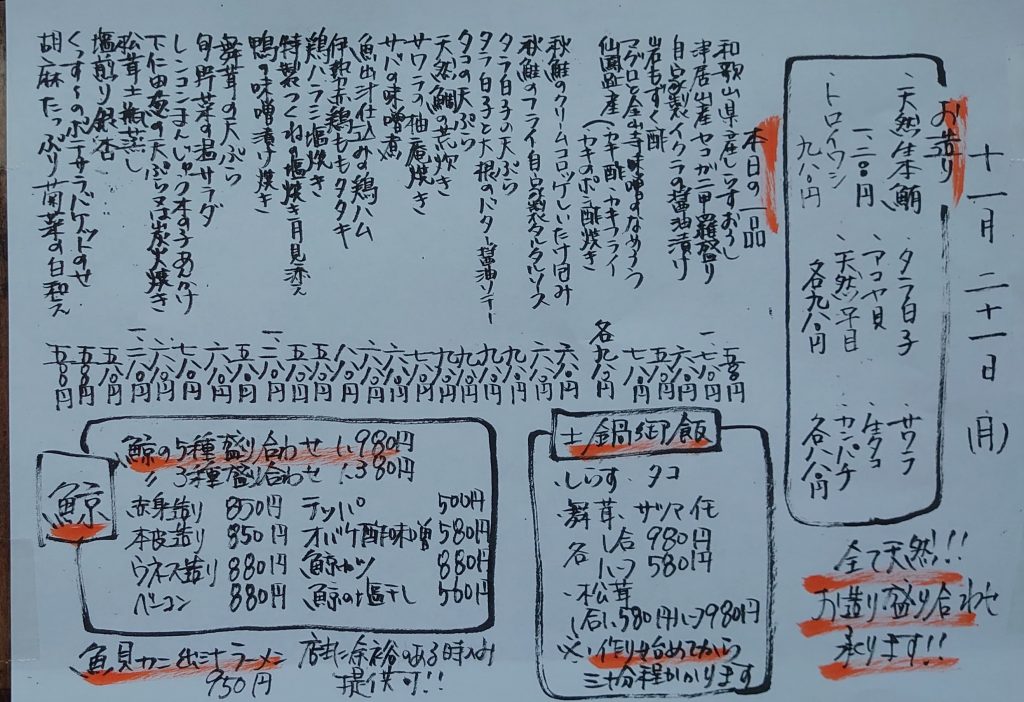 十一月二十一日(月)
お造り
・天然生本鮪
一、二八〇円
・トロイワシ
九八〇円
・タラ白子
・アコヤ貝
・天然平目
各九八〇円
・サワラ
・生タコ
・カンパチ
各八八〇円
全て天然!!
お造り盛り合わせ
承ります!!
本日の一品
和歌山県産しらすおろし
津居山産セコガニ甲羅盛り
自家製イクラの醤油漬け
岩もずく酢
マグロと金山寺味噌のなめろう
仙鳳趾産(カキ酢・カキフライ
カキのポン酢焼き
各九八〇円
秋鮭のクリームコロッケしいたけ包み
秋鮭のフライ自家製タルタルソース
タラ白子の天ぷら
タラ白子と大根のバター醤油ソテー
タコの天ぷら
天然鯛の荒炊き
サワラの柚庵焼き
サバの味噌煮
魚出汁仕込みの鶏ハム
伊勢赤鶏ももタタキ
鶏ハラミ塩焼き
特製つくねの塩焼き月見添え
鴨の味噌漬け焼き
舞茸の天ぷら
旬野菜の温サラダ
レンコンまんじゅう木の子あんかけ
下仁田葱の天ぷら又は炭火焼き
松茸土瓶蒸し
塩煎り銀杏
くんすーのポテサラバゲットのせ
胡麻たっぷり菊菜の白和え
土鍋御飯
・しらす・タコ
・舞茸・サツマ任
各一合980円
ハーフ580円
・松茸
一合1、580円ハーフ980円
※作り始めてから
三十分程かかります
鯨
鯨の5種盛り合わせ 1、980円
〃3種盛り合わせ 1、380円
赤身造り 850円 テッパ 500円
本皮造り 850円 オバケ酢味噌 580円
ウネス造り 880円 鯨カツ 880円
ベーコン 880円 鯨の塩干し 560円
魚貝カニ出汁ラーメン
950円
店主に余裕のある時のみ
提供可!!